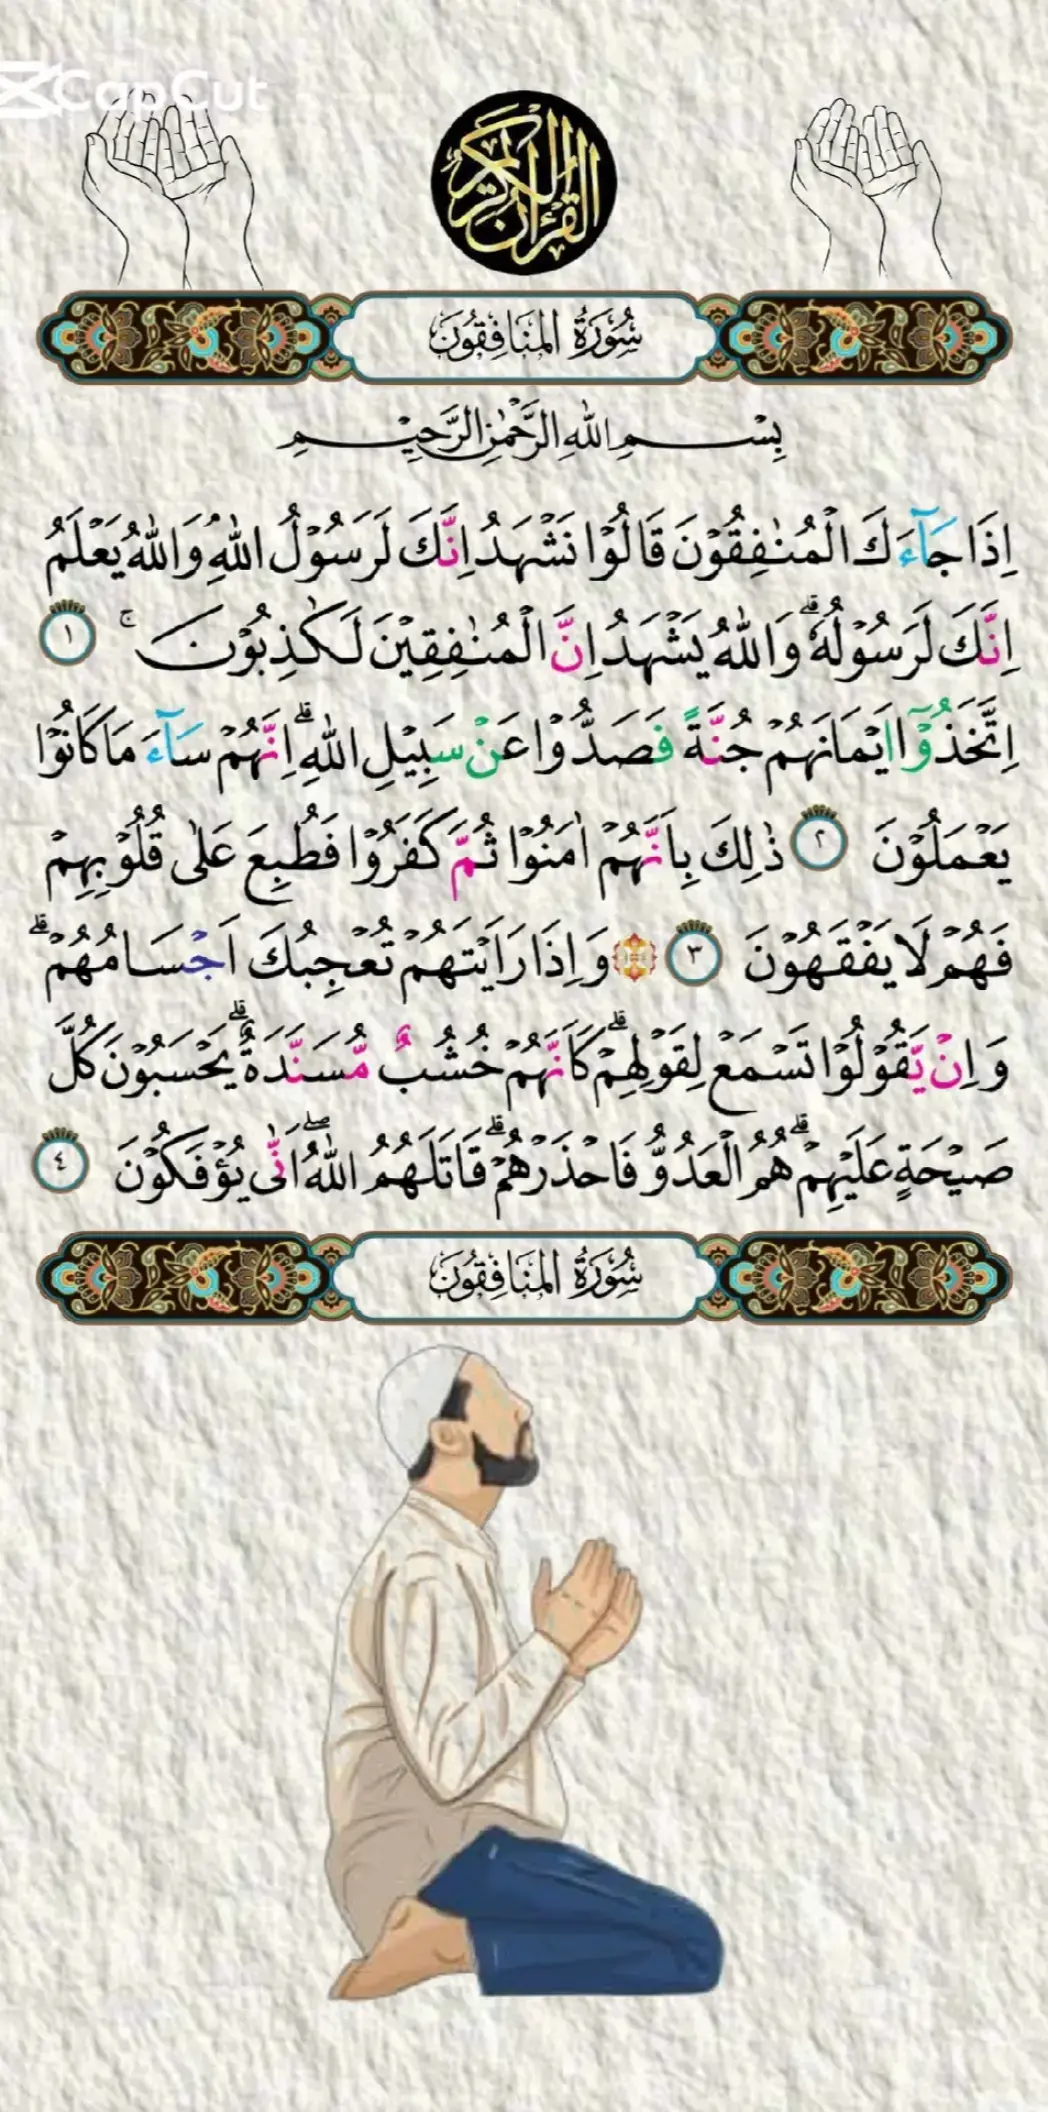 CapCut
القرآن الكريم
سُوْرَةُ المُنَافِقُونَ
بِسْمِ اللهِ الرَّحْمٰنِ الرَّحِيْمِ
اِذَا جَآءَكَ الْمُنٰفِقُوْنَ قَالُوْا نَشْهَدُ اِنَّكَ لَرَسُوْلُ اللّٰهِ ۘ وَاللّٰهُ يَعْلَمُ
اِنَّكَ لَرَسُوْلُهٗ ؕ وَاللّٰهُ يَشْهَدُ اِنَّ الْمُنٰفِقِيْنَ لَكٰذِبُوْنَ ۚ ١
اِتَّخَذُوْۤا اَيْمَانَهُمْ جُنَّةً فَصَدُّوْا عَنْ سَبِيْلِ اللّٰهِ ؕ اِنَّهُمْ سَآءَ مَا كَانُوْا
يَعْمَلُوْنَ ٢ ذٰلِكَ بِاَنَّهُمْ اٰمَنُوْا ثُمَّ كَفَرُوْا فَطُبِعَ عَلٰى قُلُوْبِهِمْ
فَهُمْ لَا يَفْقَهُوْنَ ٣ ۞ وَاِذَا رَاَيْتَهُمْ تُعْجِبُكَ اَجْسَامُهُمْ ؕ
وَاِنْ يَّقُوْلُوْا تَسْمَعْ لِقَوْلِهِمْ ؕ كَاَنَّهُمْ خُشُبٌ مُّسَنَّدَةٌ ؕ يَحْسَبُوْنَ كُلَّ
صَيْحَةٍ عَلَيْهِمْ ؕ هُمُ الْعَدُوُّ فَاحْذَرْهُمْ ؕ قَاتَلَهُمُ اللّٰهُ ۖ اَنّٰى يُؤْفَكُوْنَ ٤
سُوْرَةُ المُنَافِقُونَ